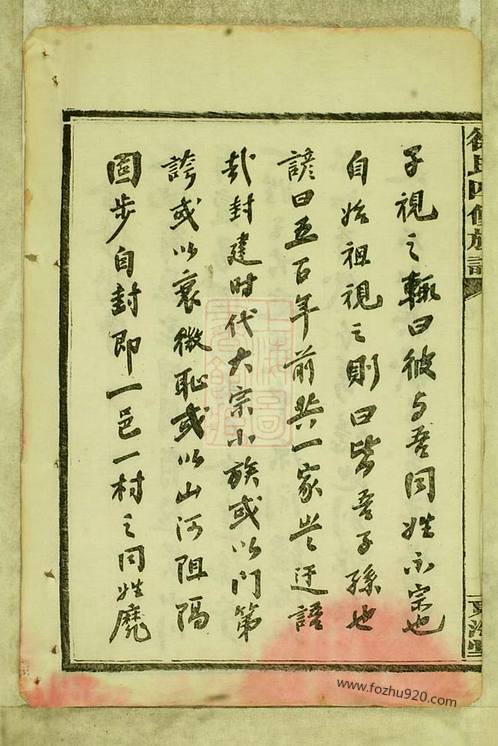 子視之輒曰彼与吾同姓不宗也
自始祖視之則曰皆吾子孫也
諺曰五百年前共一家豈迂語
哉封建时代大宗小族或以门第
誇或以衰微恥或以山河阻隔
固步自封即一邑一村之同姓麾
徐氏四修族譜
www.fozhu920.com